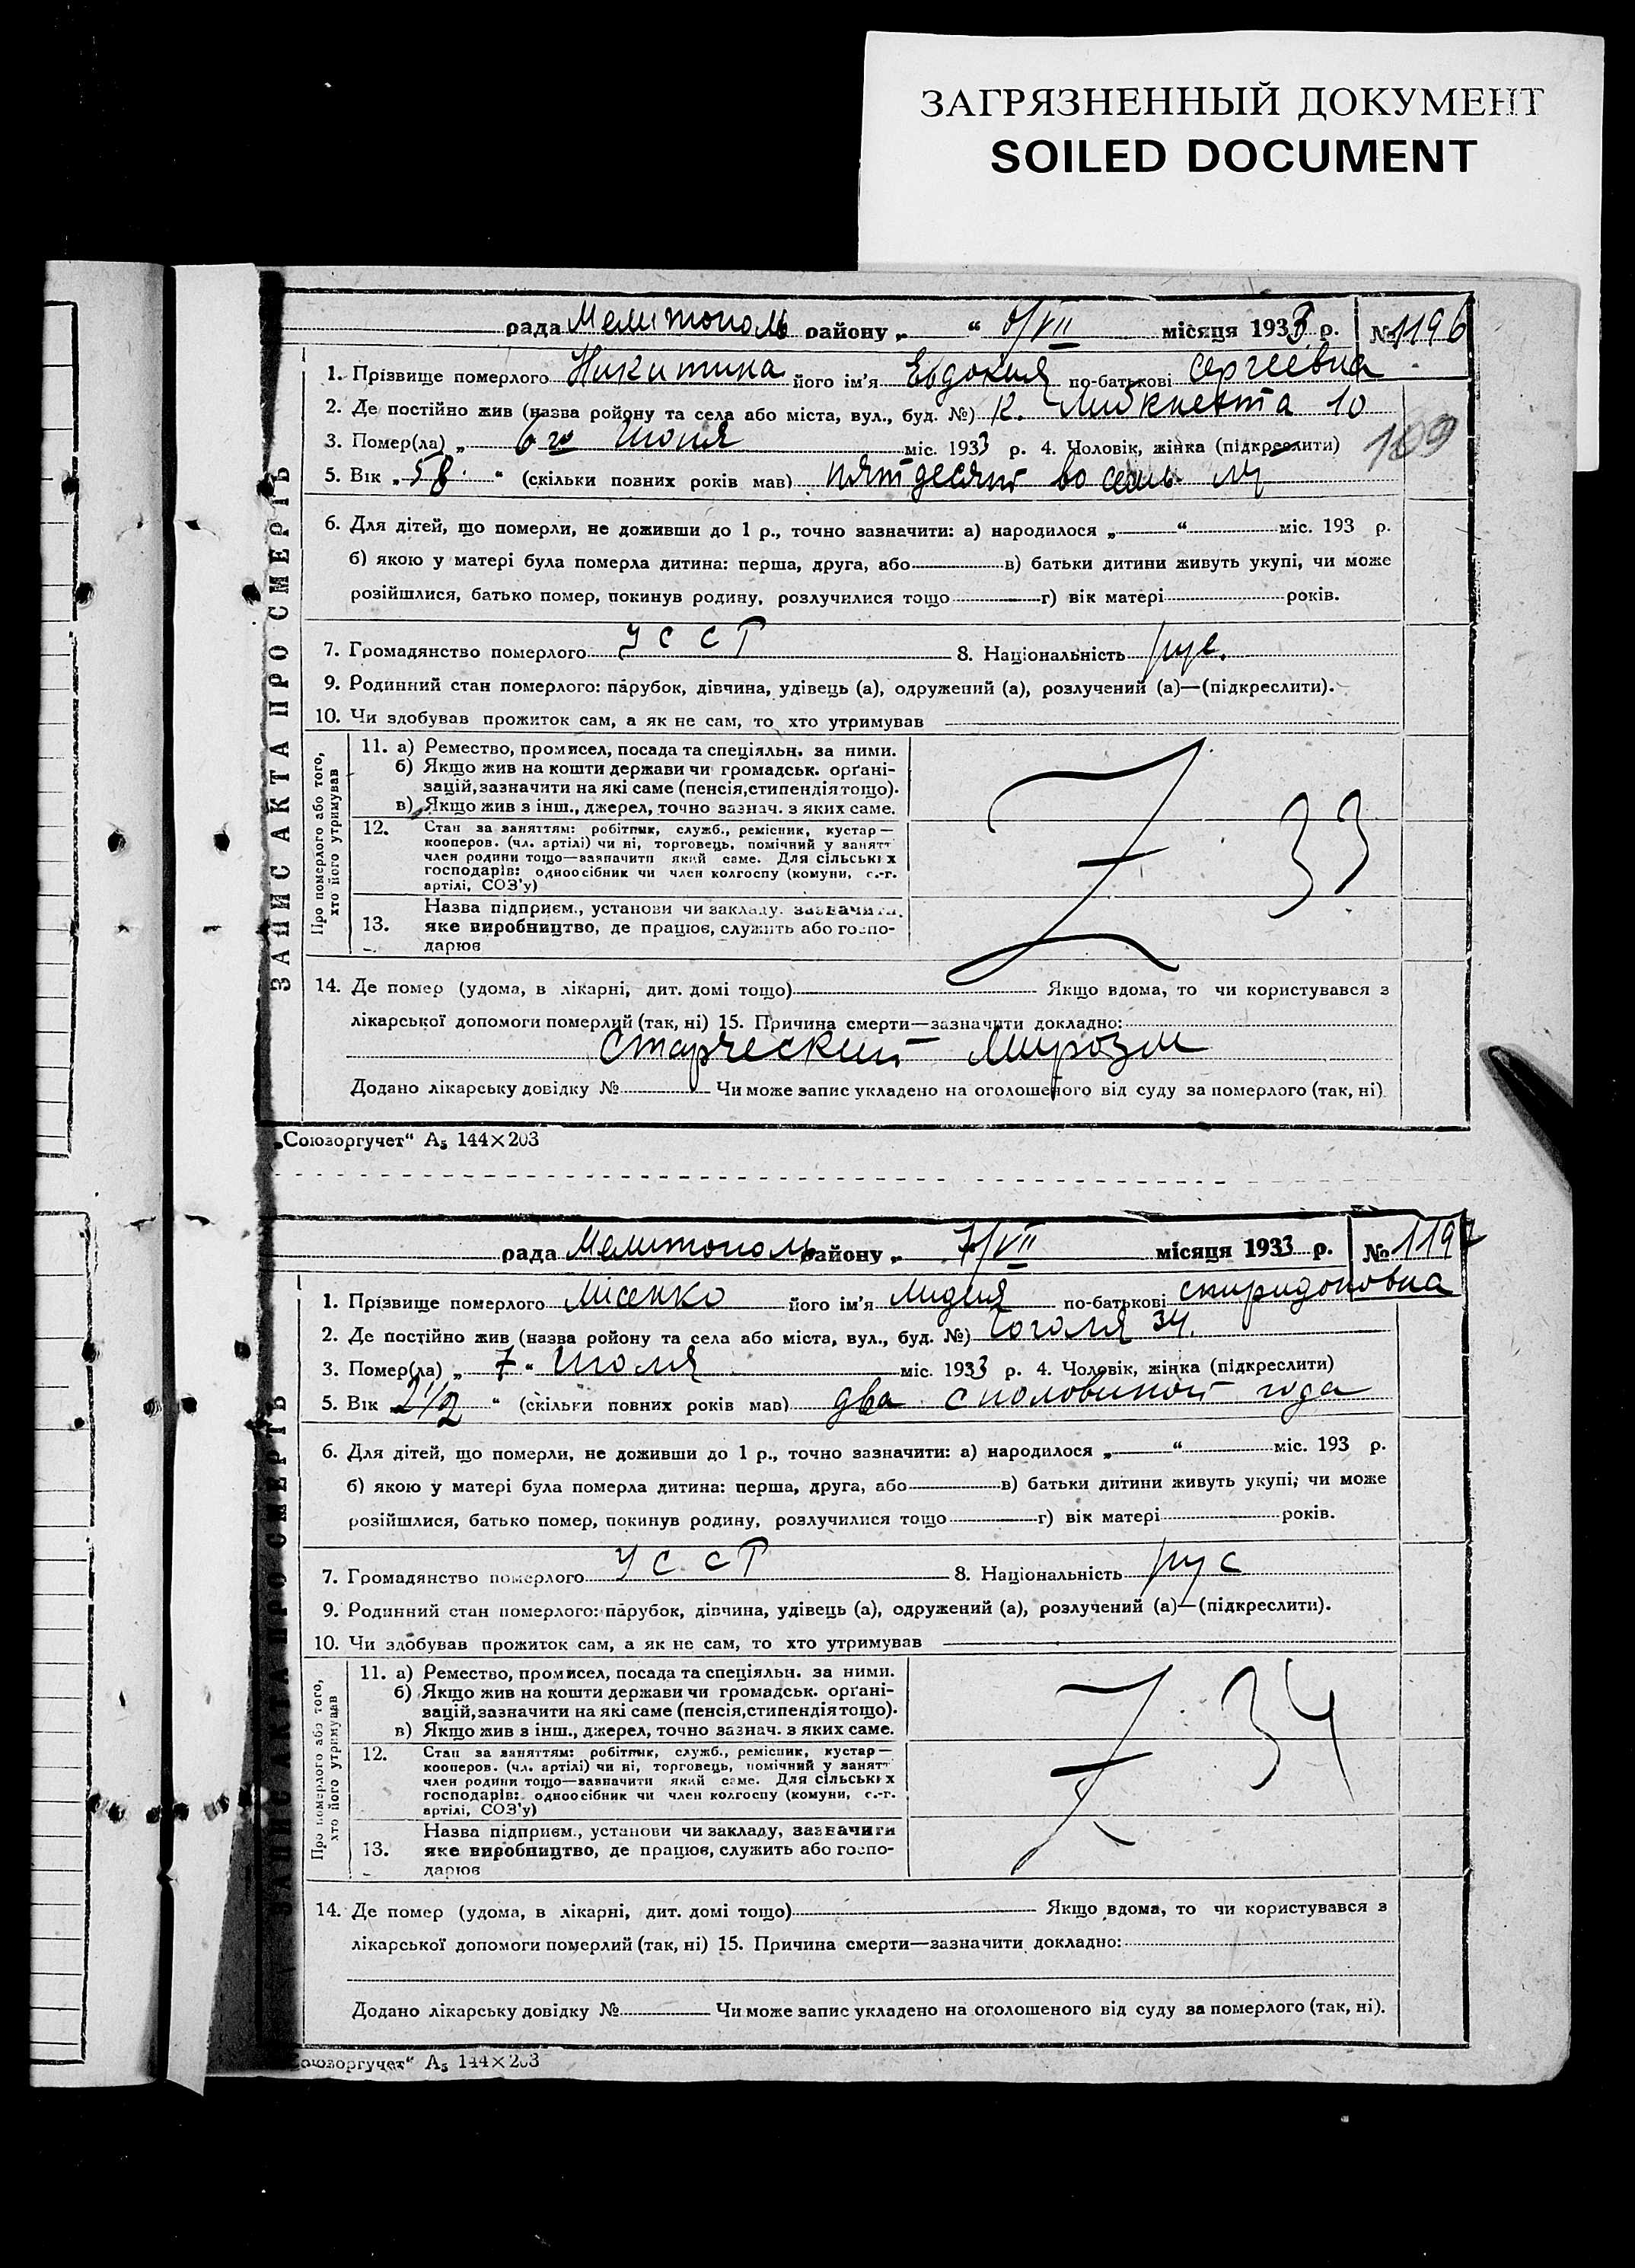 ЗАГРЯЗНЕННЫЙ ДОКУМЕНТ
SOILED DOCUMENT
рада Мелитополь району „ “ 6/VII місяця 1933 р. № 1196
1. Прізвище померлого Никитина його ім’я Евдокия по-батькові Сергеевна
2. Де постійно жив (назва ройону та села або міста, вул., буд. №) К. Либкнехта 10
109
3. Помер(ла) „ 6го Июля міс. 1933 р. 4. Чоловік, жінка (підкреслити)
5. Вік „ 58 “ (скільки повних років мав) пятдесят восемь
6. Для дітей, що померли, не доживши до 1 р., точно зазначити: а) народилося „ “ міс. 193 р.
б) якою у матері була померла дитина: перша, друга, або в) батьки дитини живуть укупі, чи може
розійшлися, батько помер, покинув родину, розлучилися тощо г) вік матері років.
7. Громадянство померлого УССР 8. Національність рус.
9. Родинний стан померлого: парубок, дівчина, удівець (а), одружений (а), розлучений (а)—(підкреслити).
10. Чи здобував прожиток сам, а як не сам, то хто утримував
ЗАПИС АКТА ПРО СМЕРТЬ
Про померлого або того,
хто його утримував
11. а) Ремество, промисел, посада та спеціяльн. за ними.
б) Якщо жив на кошти держави чи громадськ. орґані-
зацій, зазначити на які саме (пенсія, стипендія тощо).
в) Якщо жив з інш., джерел, точно зазнач. з яких саме.
12. Стан за заняттям: робітник, служб., ремісник, кустар—
кооперов. (чл. артілі) чи ні, торговець, помічний у занятт
член родини тощо—зазначити який саме. Для сільських
господарів: одноосібник чи член колгоспу (комуни, с.-г.
артілі, СОЗ’у)
7 33
Назва підприєм., установи чи закладу, зазначити
13. яке виробництво, де працює, служить або госпо-
дарює
14. Де помер (удома, в лікарні, дит. домі тощо) Якщо вдома, то чи користувався з
лікарської допомоги померлий (так, ні) 15. Причина смерти—зазначити докладно:
Старческий
Додано лікарську довідку № Чи може запис укладено на оголошеного від суду за померлого (так, ні)
„Союзоргучет“ А5 144×203
рада Мелитополь району „ 7/VII місяця 1933 р. № 1197
1. Прізвище померлого Місенко його ім’я Лидия по-батькові Спиридоновна
2. Де постійно жив (назва ройону та села або міста, вул., буд. №) Гоголя 34.
3. Помер(ла) „ 7 “ Июля міс. 1933 р. 4. Чоловік, жінка (підкреслити)
5. Вік 2 1/2 “ (скільки повних років мав) два с половиной года
6. Для дітей, що померли, не доживши до 1 р., точно зазначити: а) народилося „ “ міс. 193 р.
б) якою у матері була померла дитина: перша, друга, або в) батьки дитини живуть укупі, чи може
розійшлися, батько помер, покинув родину, розлучилися тощо г) вік матері років.
7. Громадянство померлого УССР 8. Національність рус
9. Родинний стан померлого: парубок, дівчина, удівець (а), одружений (а), розлучений (а)—(підкреслити).
10. Чи здобував прожиток сам, а як не сам, то хто утримував
ЗАПИС АКТА ПРО СМЕРТЬ
Про померлого або того,
хто його утримував
11. а) Ремество, промисел, посада та спеціяльн. за ними.
б) Якщо жив на кошти держави чи громадськ. орґані-
зацій, зазначити на які саме (пенсія, стипендія тощо).
в) Якщо жив з інш., джерел, точно зазнач. з яких саме.
12. Стан за заняттям: робітник, служб., ремісник, кустар—
кооперов. (чл. артілі) чи ні, торговець, помічний у занятт
член родини тощо—зазначити який саме. Для сільських
господарів: одноосібник чи член колгоспу (комуни, с.-г.
артілі, СОЗ’у)
7 34
Назва підприєм., установи чи закладу, зазначити
13. яке виробництво, де працює, служить або госпо-
дарює
14. Де помер (удома, в лікарні, дит. домі тощо) Якщо вдома, то чи користувався з
лікарської допомоги померлий (так, ні) 15. Причина смерти—зазначити докладно:
Додано лікарську довідку № Чи може запис укладено на оголошеного від суду за померлого (так, ні).
Союзоргучет“ А5 144×203